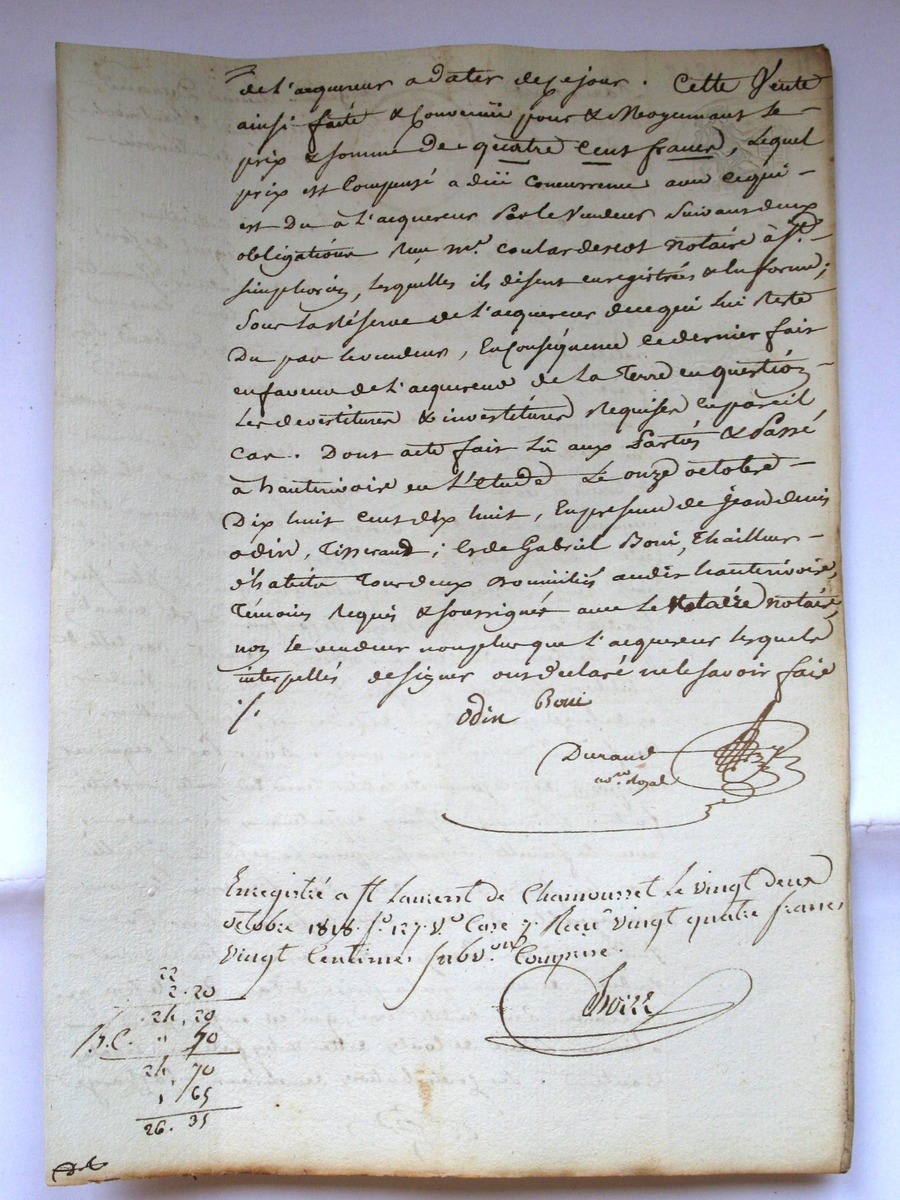 de l'acquereur a dater de ce jour. Cette Vente
ainsi faite & Convenüe pour & Moyennant le
prix & somme de quatre Cent francs, Lequel
prix est Compensé a düe Concurrence avec ce qui
est Du à L'acquereur Par le Vendeur Suivant deux
obligations Reçu mre. notaire à St.
Simphorien, Lesquelles ils disent enregistrées & En forme;
Sous La Réserve de L'acquereur de ce qui Lui Reste
Du par le vendeur, En Conséquence Ce dernier fait
en faveur de L'acquereur de La Terre en question
Les devestitures & investitures Requises en pareil
Cas. Dont acte fait Lû aux Parties & Passé
à hauterivoire en L'Etude Le onze octobre
Dix huit Cent dix huit, En presence de Jean denis
odin, Tisserand; & de Gabriel Boui, Thailleur
d'habits Tous deux Domiciliés audit hauterivoire,
Témoins Requis & soussignés avec Le notaire,
non Le vendeur non plus que L'acquereur Lesquels
interpellés de signer ont declaré ne le savoir faire
/.
odin Boui
Durand
nore. Royal
Enregistré a St Laurent de Chamousset Le vingt deux
octobre 1818. fo. 127. Vo. Case 7. Recu vingt quatre francs
vingt Centimes subvon Comprise.
22
2.20
24,20
" 50
24,70
1,65
26.35